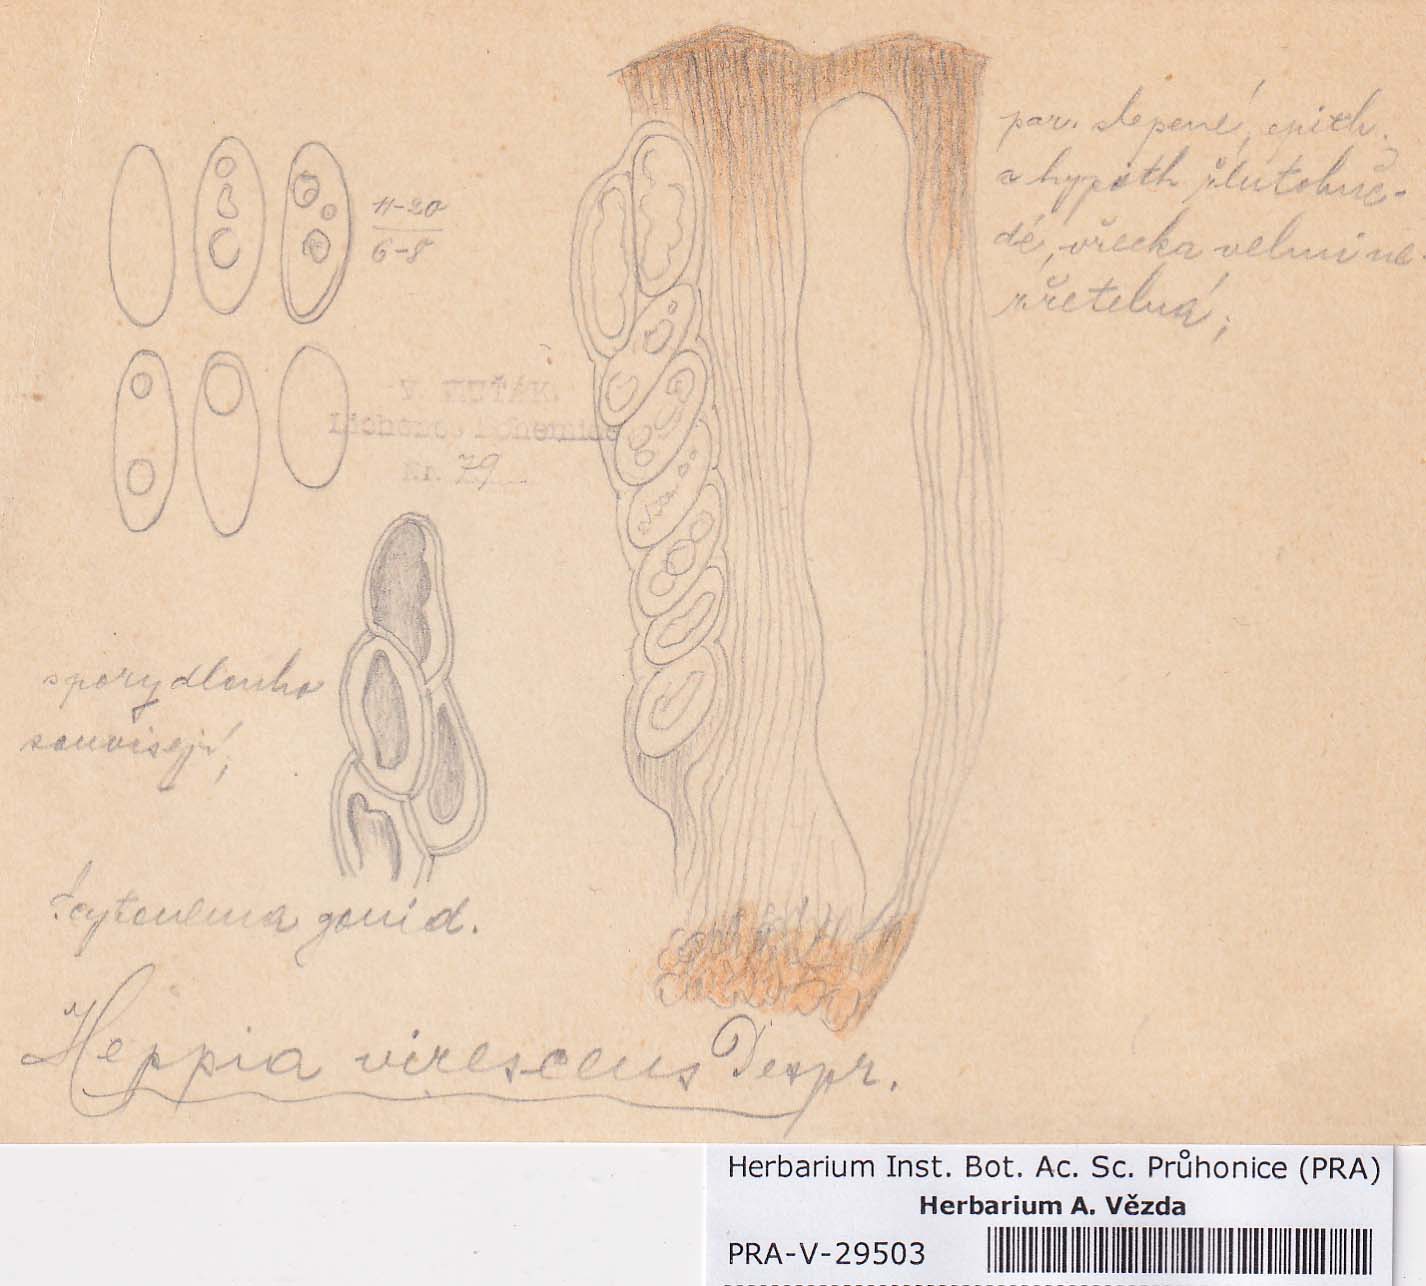 par. slepené, epith.
a hypoth žlutohně-
dé, vřecka velmi ne-
zřetelná;
11-20
6-8
V. KUŤÁK.
Lichenes Bohemiae
Nr. 79
spory dlouho
souvisejí,
Scytonema gonid.
Heppia virescens Despr.
Herbarium Inst. Bot. Ac. Sc. Průhonice (PRA)
Herbarium A. Vězda
PRA-V-29503